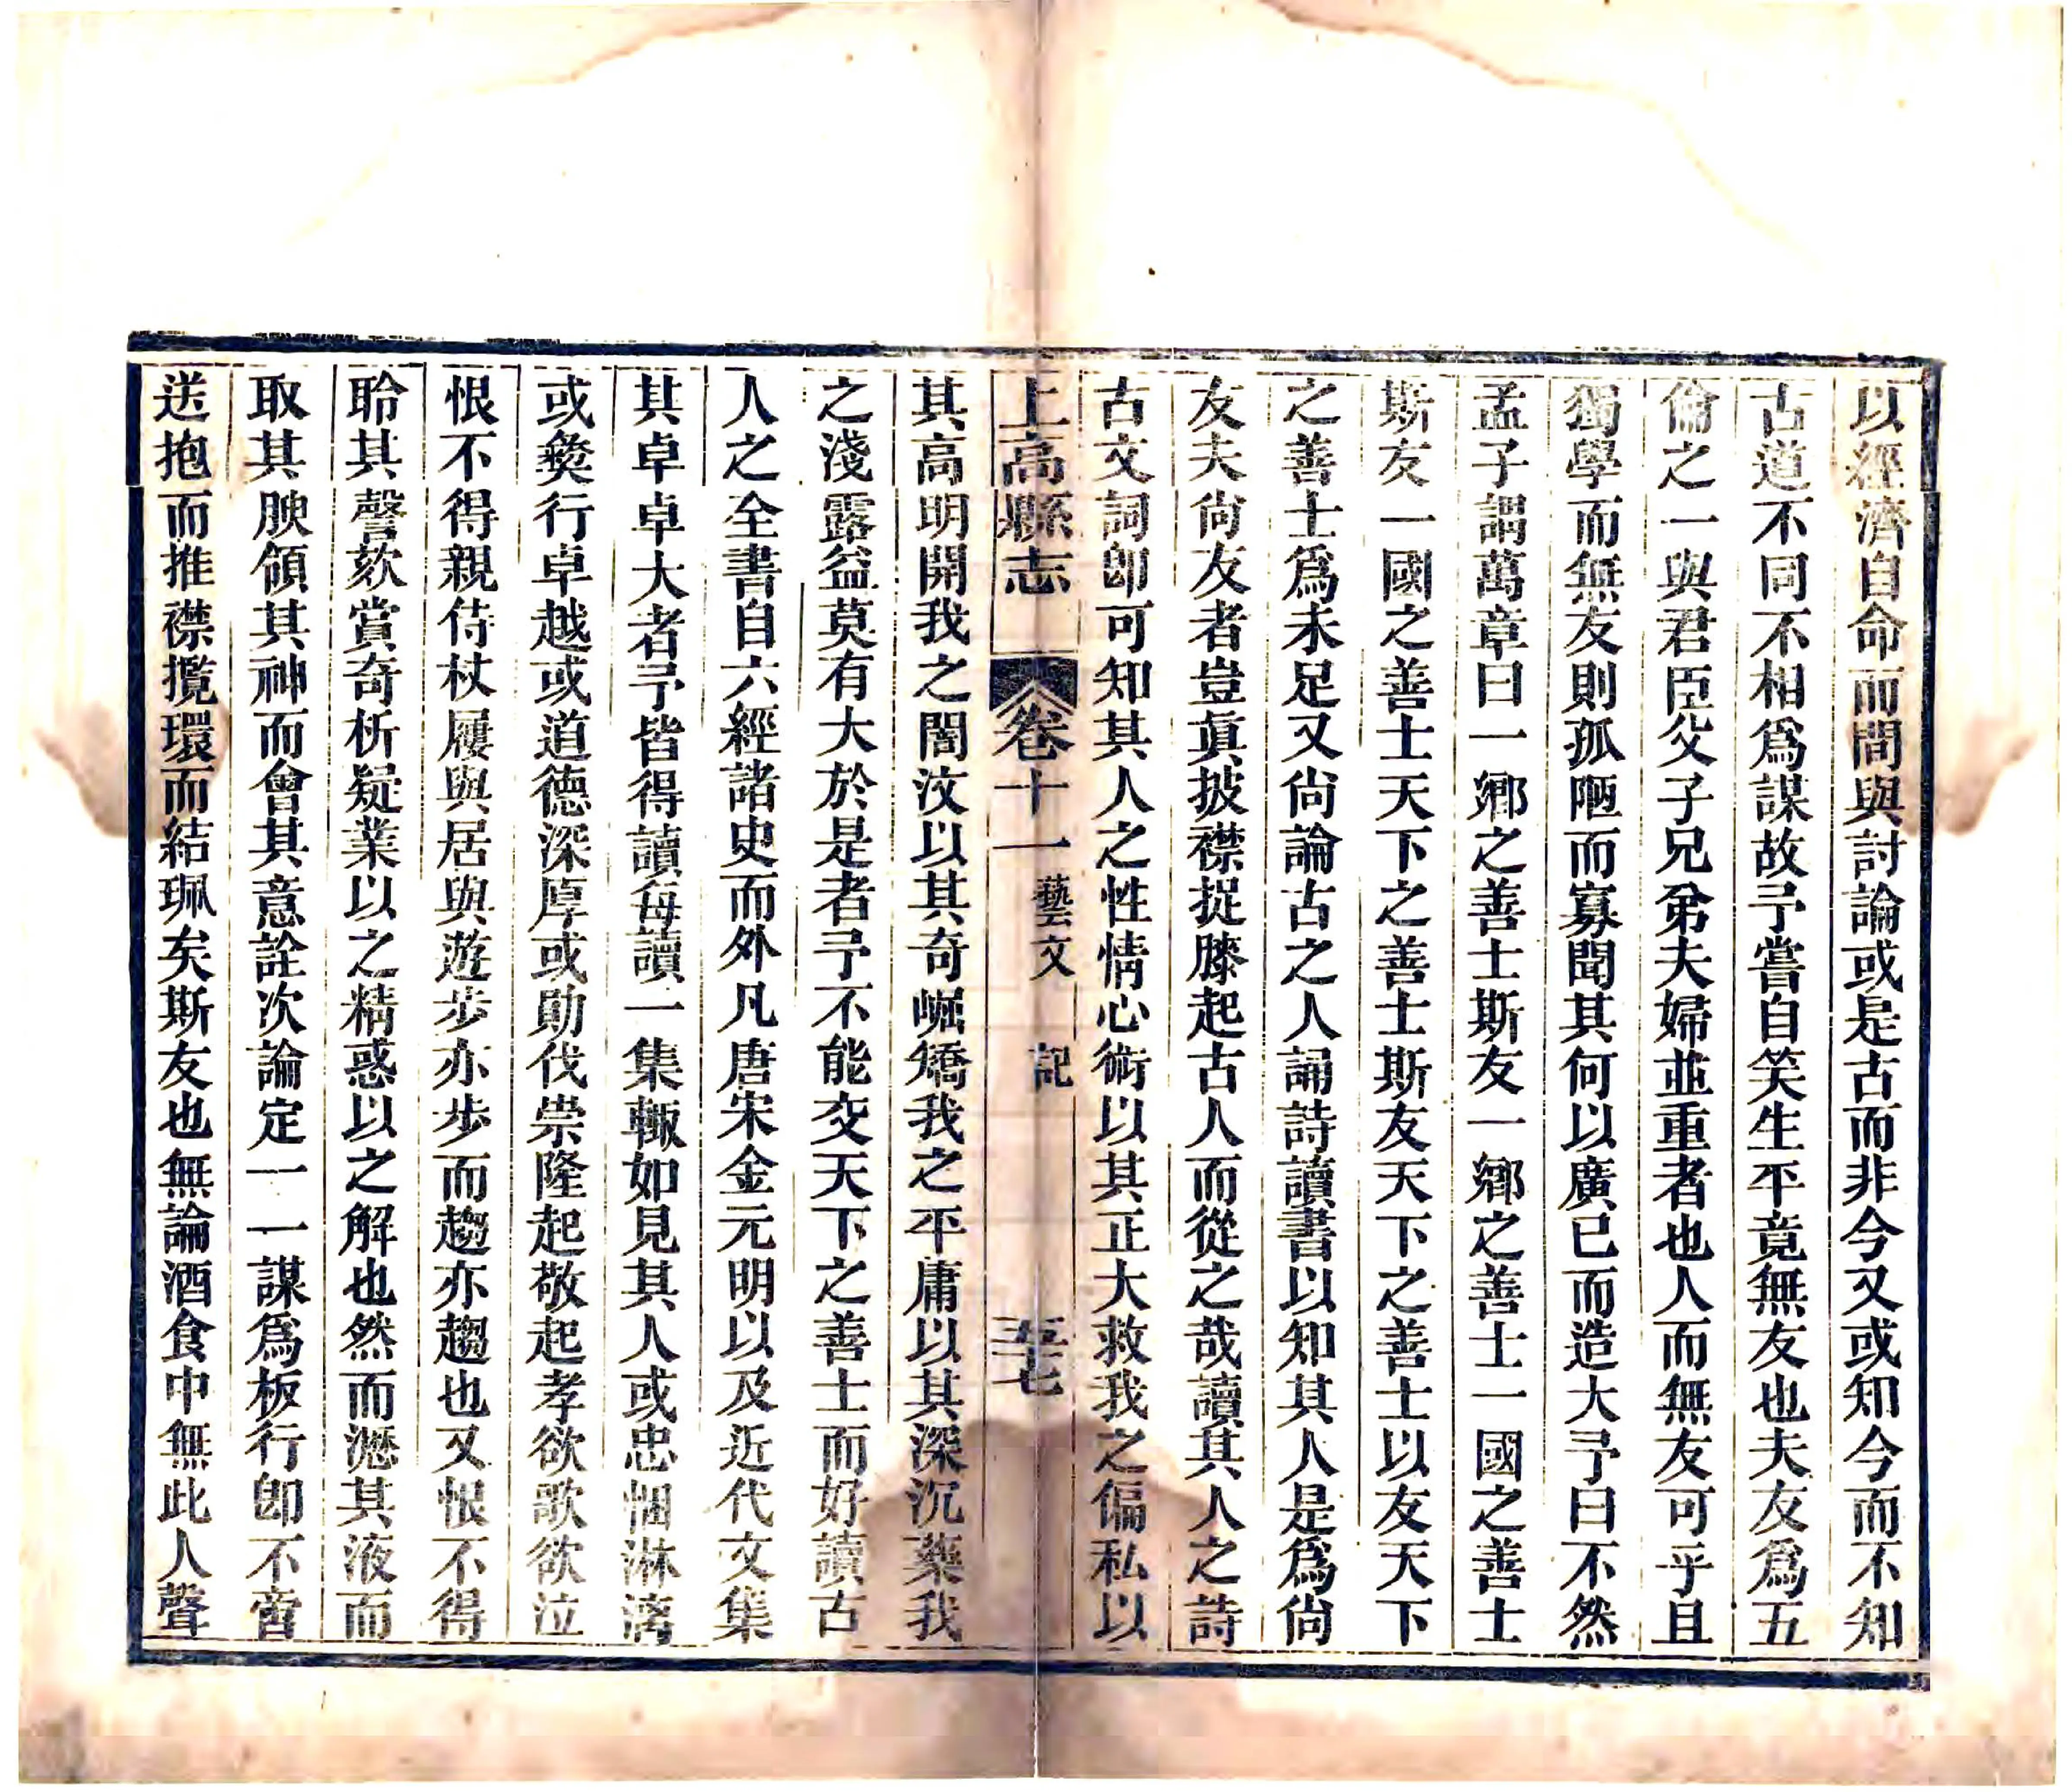 以經濟自命而間與討論或是古而非今又或知今而不知
古道不同不相爲謀故予嘗自笑生平竟無友也夫友爲五
倫之一與君臣父子兄弟夫婦並重者也人而無友可乎且
獨學而無友則孤陋而寡聞其何以廣已而造大予曰不然
孟子謂萬章曰一鄉之善士斯友一鄉之善士一國之善士
斯友一國之善士天下之善士斯友天下之善士以友天下
之善士爲未足又尙論古之人誦詩讀書以知其人是爲尙
友夫尙友者豈眞披襟捉膝起古人而從之哉讀其人之詩
古文詞卽可知其人之性情心術以其正大救我之偏私以
上高縣志 卷十一 藝文 記 五七
其高明開我之闇汶以其奇崛矯我之平庸以其深沉藥我
之淺露益莫有大於是者予不能交天下之善士而好讀古
人之全書自六經諸史而外凡唐宋金元明以及近代文集
其卓卓大者予皆得讀每讀一集輒如見其人或忠悃淋漓
或獧行卓越或道德深厚或勛伐崇隆起敬起孝欲歌欲泣
恨不得親侍杖履與居與遊步亦步而趨亦趨也又恨不得
聆其謦欬賞奇析疑業以之精惑以之解也然而漚其液而
取其腴領其神而會其意詮次論定一一謀爲板行卽不啻
送抱而推襟攬環而結珮矣斯友也無論酒食中無此人聲